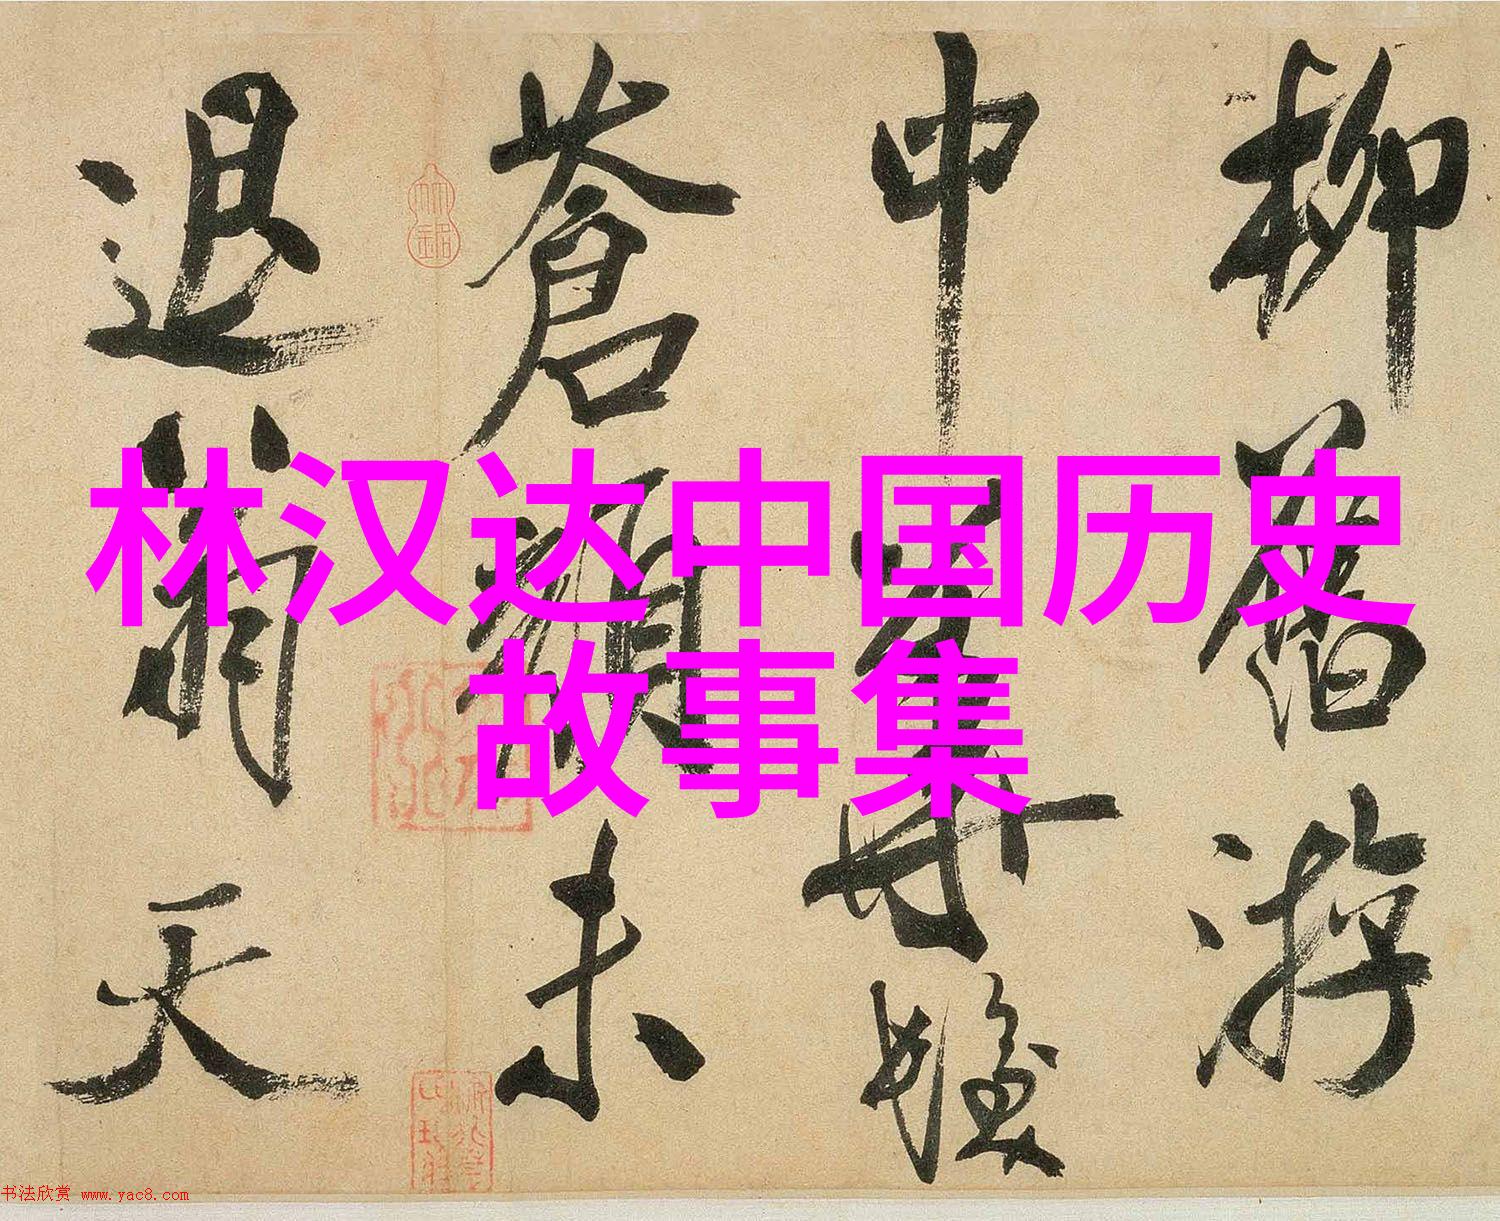 林汉达中国历史
故事集
柳舊游
中
蒼顏未
退翁天
书法欣赏 www.yac8.com